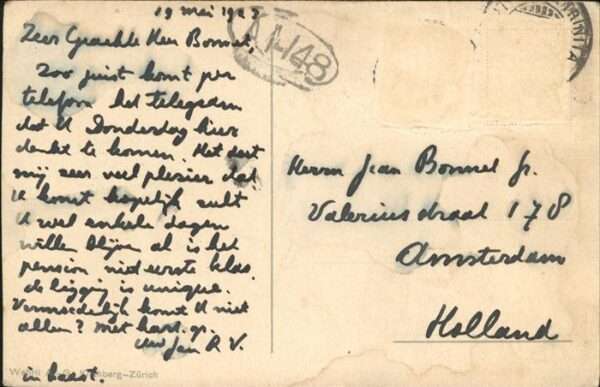 19 mei 192
Zeer Geachte Heer Bonnet,
Zoo juist komt per
telefoon het telegram
dat U Donderdag hier
denkt te komen. Het doet
mij zeer veel plezier dat
U komt hopelijk zult
U wel enkele dagen
willen blijven al is het
pension niet eerste klas.
de ligging is unique.
Vermoedelijk komt U niet
alleen? Met hart. gr.
Uw Jan R. V.
in haast.
A H48
TRINITA
Herrn Jean Bonnet Jr.
Valeriusstraat 178
Amsterdam
Holland
–Zürich